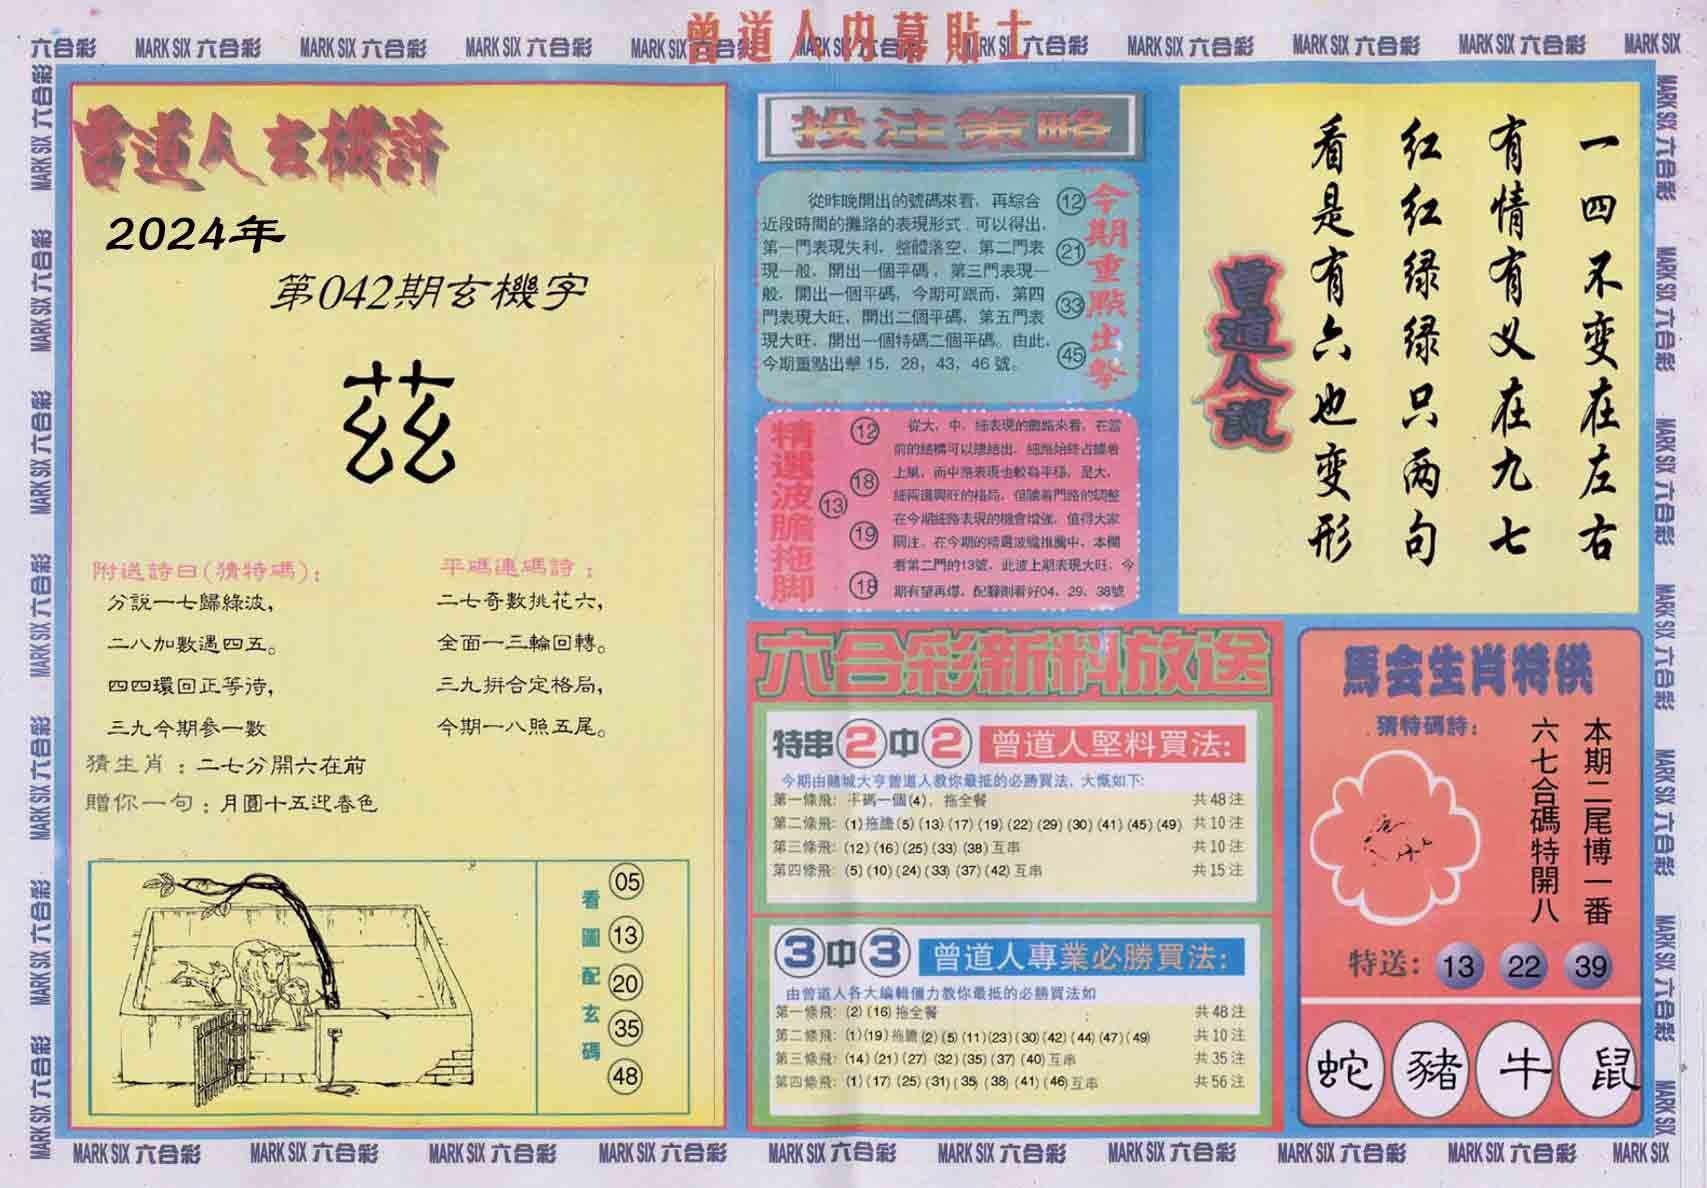 曾道人内幕貼士
六合彩 MARK SIX 六合彩 MARK SIX 六合彩 MARK SIX 六合彩 MARK SIX 六合彩 MARK SIX 六合彩 MARK SIX 六合彩 MARK SIX 六合彩 MARK SIX 六合彩 MARK SIX 六合彩 MARK SIX
曾道人玄機詩
2024年
第042期玄機字
茲
附送詩曰(猜特碼):
分說一七歸綠波,
二八加數遇四五。
四四環回正等待,
三九今期參一數
平碼連碼詩:
二七奇數挑花六,
全面一三輪回轉。
三九拼合定格局,
今期一八照五尾。
猜生肖:二七分開六在前
贈你一句:月圓十五迎春色
看圖配玄碼
05
13
20
35
48
投注策略
從昨晚開出的號碼來看，再綜合
近段時間的攤路的表現形式，可以得出，
第一門表現失利，整體落空，第二門表
現一般，開出一個平碼，第三門表現一
般，開出一個平碼，今期可跟而，第四
門表現大旺，開出二個平碼，第五門表
現大旺，開出一個特碼二個平碼。由此，
今期重點出擊 15，28，43，46 號。
12
21
33
45
今期重點出擊
精選波膽拖脚
12
18
13
19
18
從大，中，細表現的攤路來看，在當
前的結構可以總結出，細路始終占據着
上風，而中路表現也較為平穩，是大，
細兩邊興旺的格局，但隨着門路的調整
在今期細路表現的機會增強，值得大家
關注。在今期的精選波膽推薦中，本欄
看第二門的13號，此波上期表現大旺，今
期有望再爆，配腳則看好04，29，38號
六合彩新料放送
特串2中2 曾道人堅料買法:
今期由賭城大亨曾道人教你最抵的必勝買法，大慨如下:
第一條飛: 平碼一個(4)，拖全餐 共48注
第二條飛: (1)拖膽(5)(13)(17)(19)(22)(29)(30)(41)(45)(49) 共10注
第三條飛: (12)(16)(25)(33)(38)互串 共10注
第四條飛: (5)(10)(24)(33)(37)(42)互串 共15注
3中3 曾道人專業必勝買法:
由曾道人各大編輯傾力教你最抵的必勝買法如
第一條飛: (2)(16)拖全餐 共48注
第二條飛: (1)(19)拖膽(2)(5)(11)(23)(30)(42)(44)(47)(49) 共10注
第三條飛: (14)(21)(27)(32)(35)(37)(40)互串 共35注
第四條飛: (1)(17)(25)(31)(35)(38)(41)(46)互串 共56注
一四不变在左右
有情有义在九七
红红绿绿只两句
看是有六也变形
曾道人說
馬会生肖特供
猜特碼詩:
本期二尾博一番
六七合碼特開八
特送: 13 22 39
蛇 豬 牛 鼠
MARK SIX 六合彩 MARK SIX 六合彩 MARK SIX 六合彩 MARK SIX 六合彩 MARK SIX 六合彩 MARK SIX 六合彩 MARK SIX 六合彩 MARK SIX 六合彩 MARK SIX 六合彩 MARK SIX